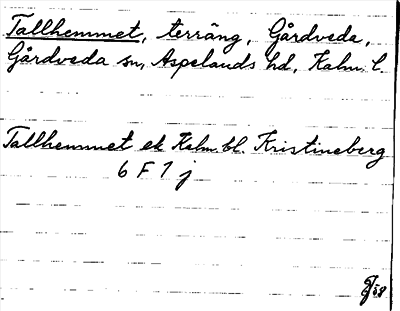 Tallhemmet, terräng, Gårdveda,
Gårdveda sn, Aspelands hd, Kalm. l.
Tallhemmet ek Kalm. bl. Kristineberg
6 F 1 j
58